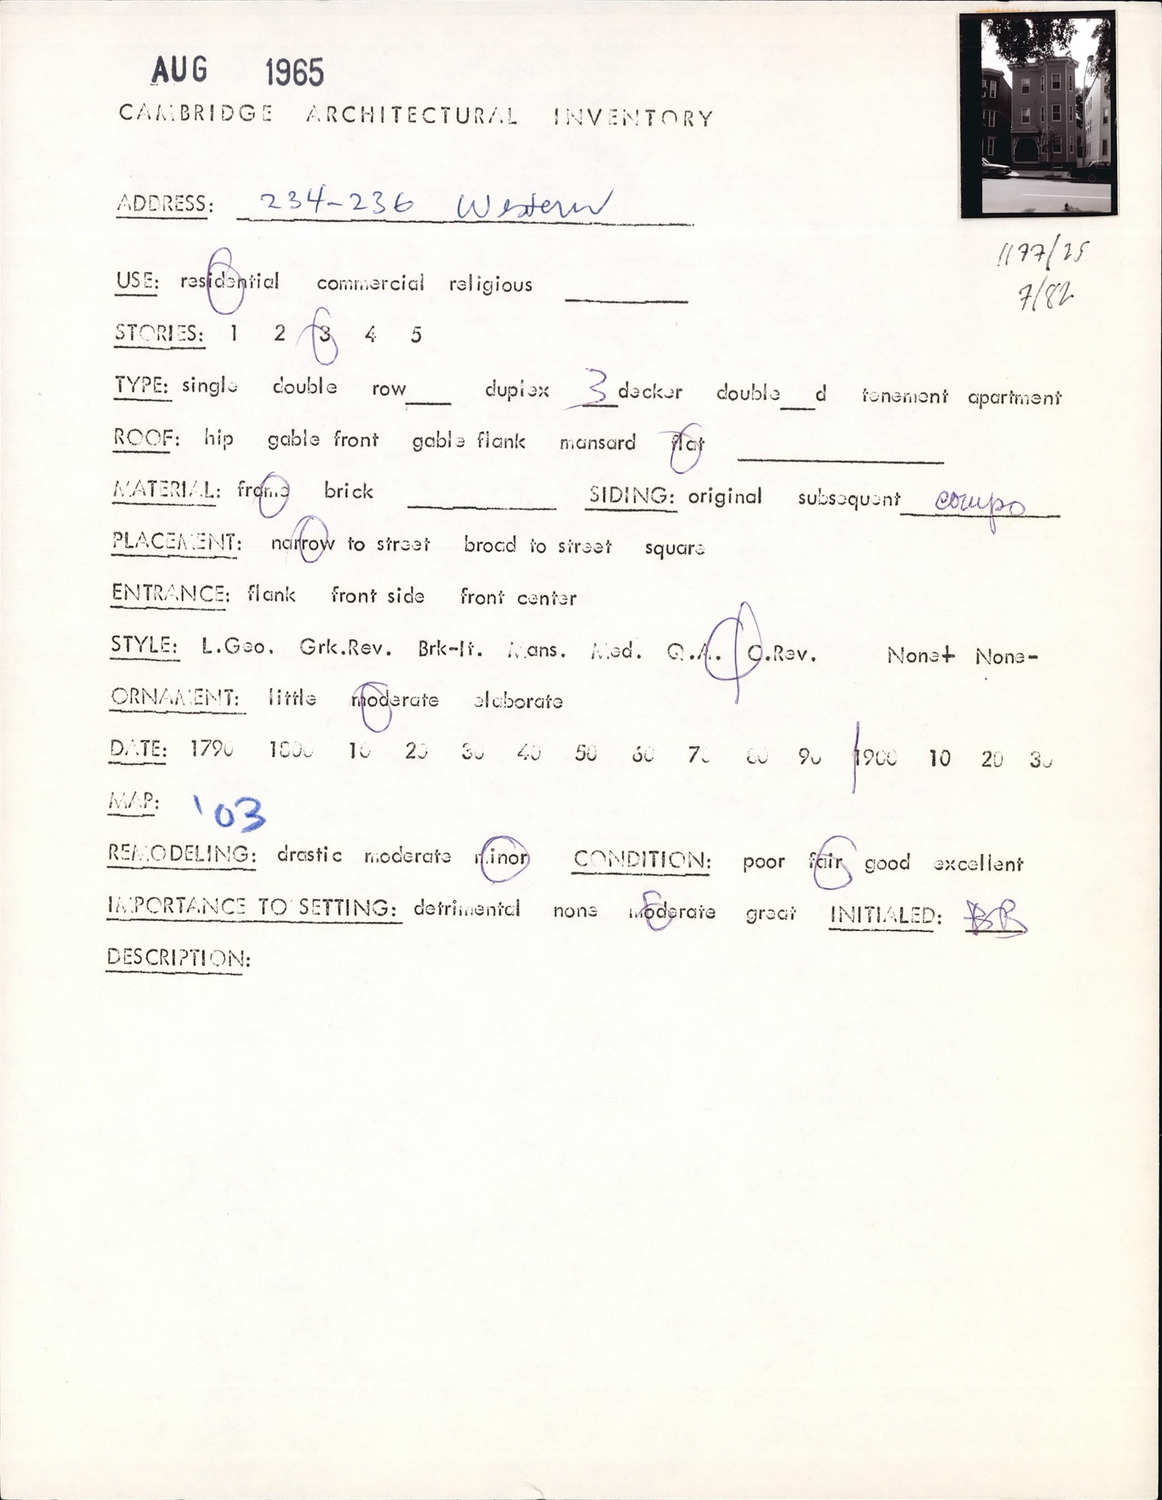 AUG 1965
CAMBRIDGE ARCHITECTURAL INVENTORY
ADDRESS: 234-236 Western
1177/25
7/82
USE: residential commercial religious
STORIES: 1 2 3 4 5
TYPE: single double row____ duplex 3 decker double___d tenement apartment
ROOF: hip gable front gable flank mansard flat
MATERIAL: frame brick SIDING: original subsequent compo
PLACEMENT: narrow to street broad to street square
ENTRANCE: flank front side front center
STYLE: L.Geo. Grk.Rev. Brk-It. Mans. Med. Q.A. C.Rev. None+ None-
ORNAMENT: little moderate elaborate
DATE: 1790 1800 10 20 30 40 50 60 70 80 90 1900 10 20 30
MAP: '03
REMODELING: drastic moderate minor CONDITION: poor fair good excellent
IMPORTANCE TO SETTING: detrimental none moderate great INITIALED: BR
DESCRIPTION: